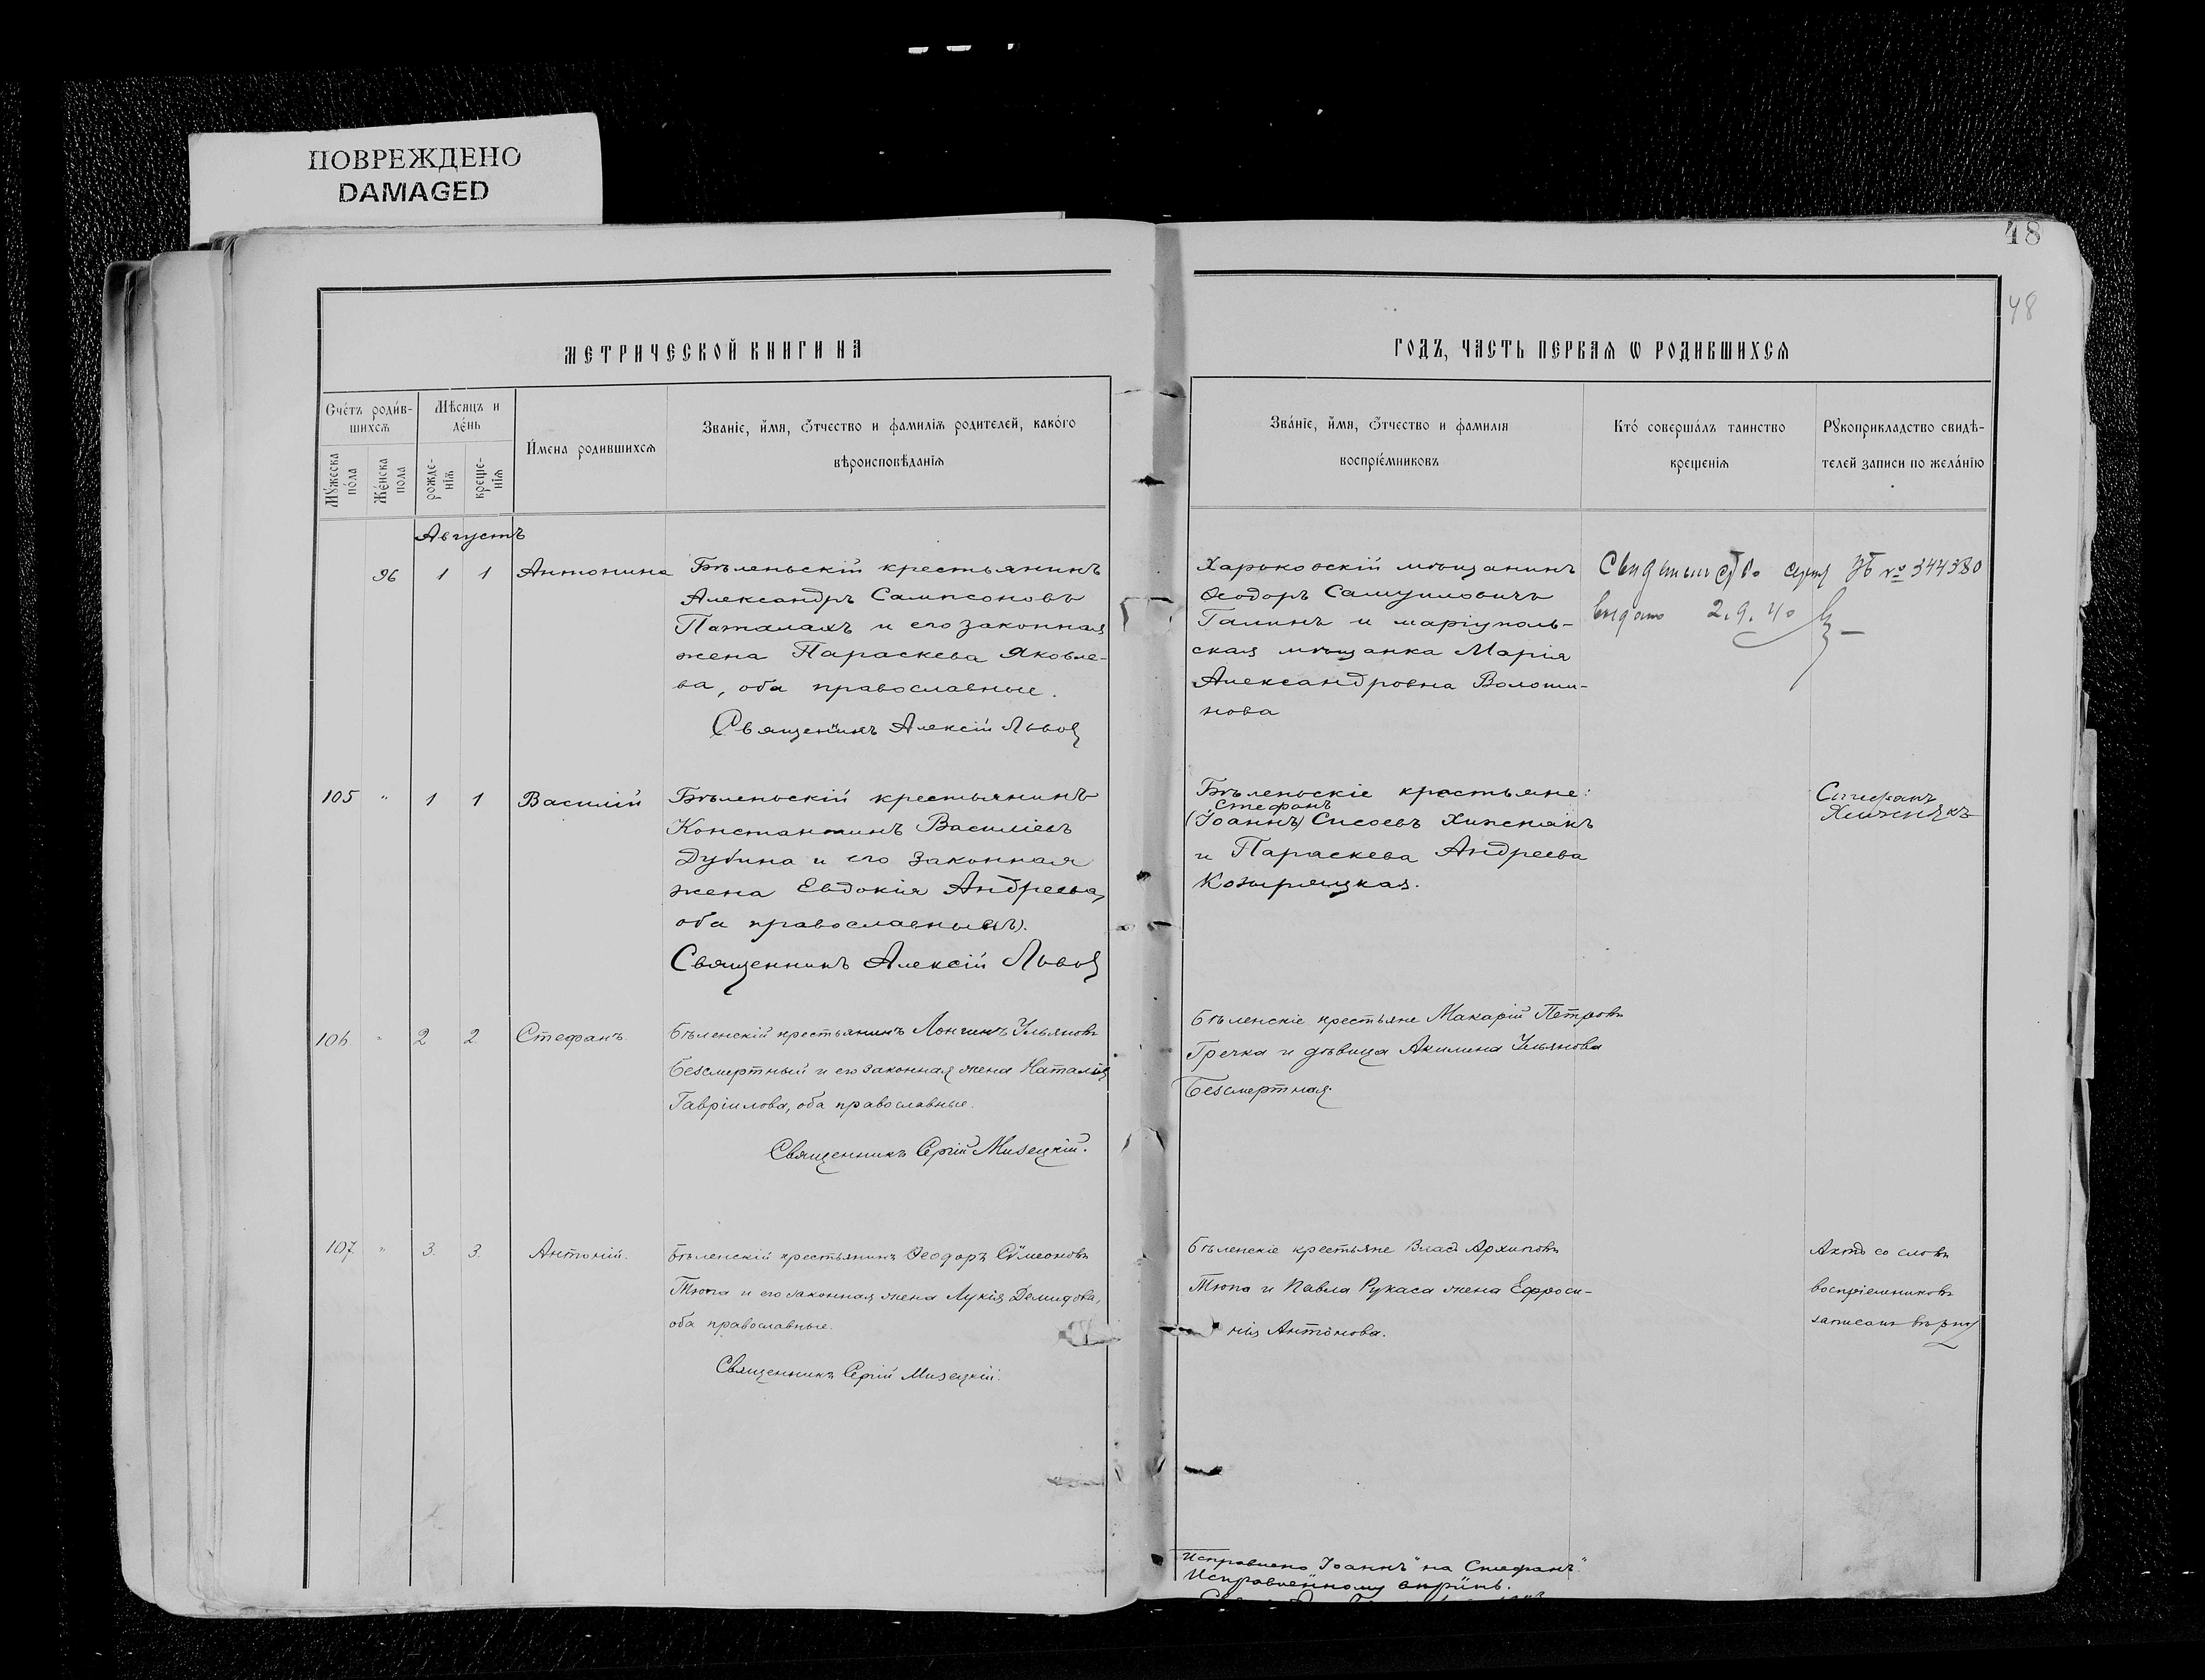 ПОВРЕЖДЕНО
DAMAGED
48
48
МЕТРИЧЕСКОЙ КНИГИ НА
ГОДЪ, ЧАСТЬ ПЕРВАЯ Ѡ РОДИВШИХСЯ
Счетъ родив-
шихся
Мужеска пола
Женска пола
Мѣсяцъ и
день
рожде-
нія
креще-
нія
Имена родившихся
Званіе, имя, отчество и фамилія родителей, какого
вѣроисповѣданія
Званіе, имя, отчество и фамилія
воспріемниковъ
Кто совершалъ таинство
крещенія
Рукоприкладство свидѣ-
телей записи по желанію
Августъ
96 1 1 Антонина
Бѣленьскій крестьянинъ
Александръ Сампсоновъ
Паталахъ и его законная
жена Параскева Яковле-
ва, оба православные.
Священникъ Алексій Львов
Харьковскій мѣщанинъ
Ѳеодоръ Самуиловичъ
Галинъ и маріуполь-
ская мѣщанка Марія
Александровна Волоши-
нова
№ 344380
выдано 2.9.40
105 " 1 1 Василій
Бѣленьскій крестьянинъ
Константинъ Василіевъ
Дубина и его законная
жена Евдокія Андреева,
оба православные(ъ).
Священникъ Алексій Львов
Бѣленьскіе крестьяне:
Стефанъ
(Іоаннъ) Сисоевъ Хижнякъ
и Параскева Андреева
Козыряцкая.
Стефанъ
Хижнякъ
106 " 2 2 Стефанъ.
Бѣленскій крестьянинъ Лонгинъ Ульяновъ
Безсмертный и его законная жена Наталія
Гавріилова, оба православные.
Священникъ Сергій Мизецкій.
Бѣленскіе крестьяне Макарій Петровъ
Гречка и дѣвица Акилина Ульянова
Безсмертная.
107 " 3. 3. Антоній.
Бѣленскій крестьянинъ Ѳеодоръ Сѵмеоновъ
Тюпа и его законная жена Лукія Демидова,
оба православные.
Священникъ Сергій Мизецкій.
Бѣленскіе крестьяне Влас Архиповъ
Тюпа и Павла Рукаса жена Ефроси-
нія Антонова.
Актъ со словъ
воспріемниковъ
записанъ вѣрно
Исправлено "Іоаннъ" на "Стефанъ".
Исправленному вѣрить.